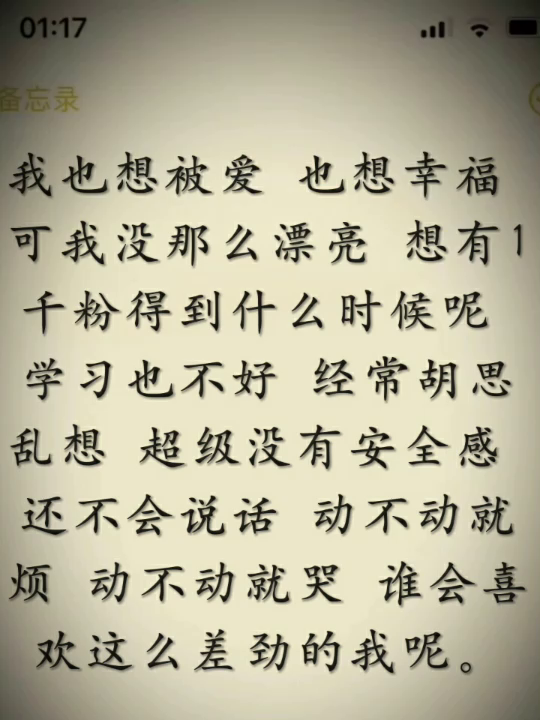 01:17
备忘录
我也想被爱 也想幸福
可我没那么漂亮 想有1
千粉得到什么时候呢
学习也不好 经常胡思
乱想 超级没有安全感
还不会说话 动不动就
烦 动不动就哭 谁会喜
欢这么差劲的我呢。